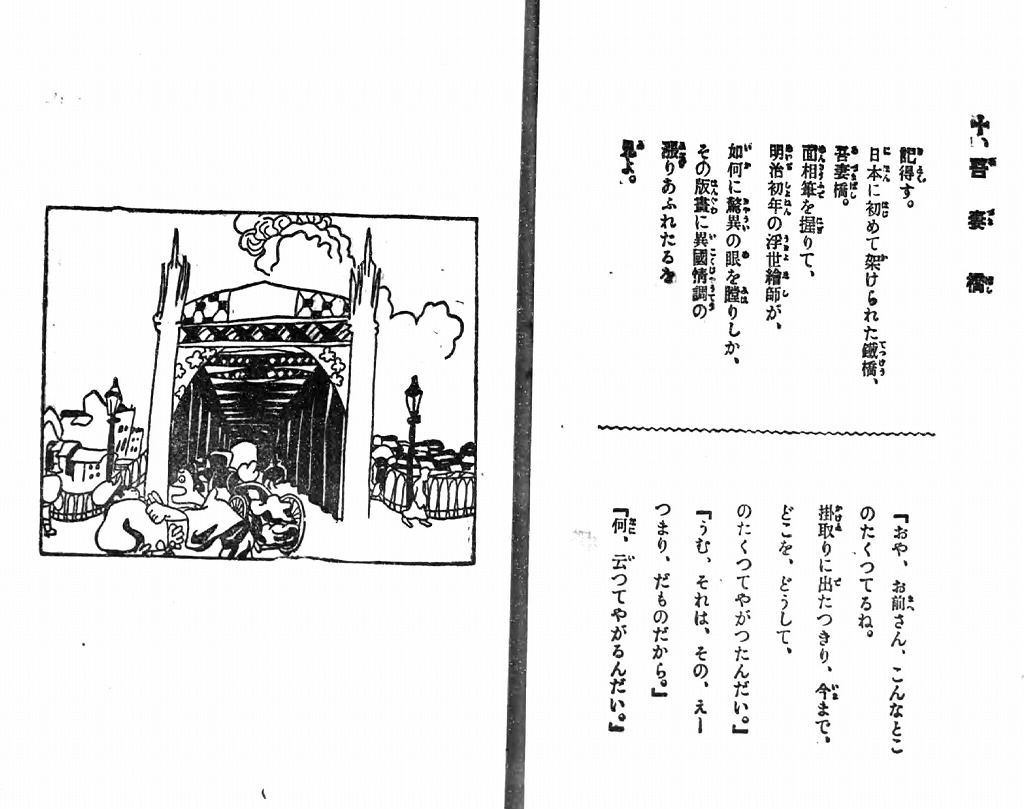 十、吾妻橋
記得す。
日本に初めて架けられた鐵橋、
吾妻橋。
面相筆を握りて、
明治初年の浮世繪師が、
如何に驚異の眼を瞠りしか、
その版畫に異國情調の
漲りあふれたるを
見よ。
『おや、お前さん、こんなとこ
のたくつてるね。
掛取りに出たつきり、今まで、
どこを、どうして、
のたくつてやがつたんだい。』
『うむ、それは、その、えー
つまり、だものだから。』
『何、云つてやがるんだい。』